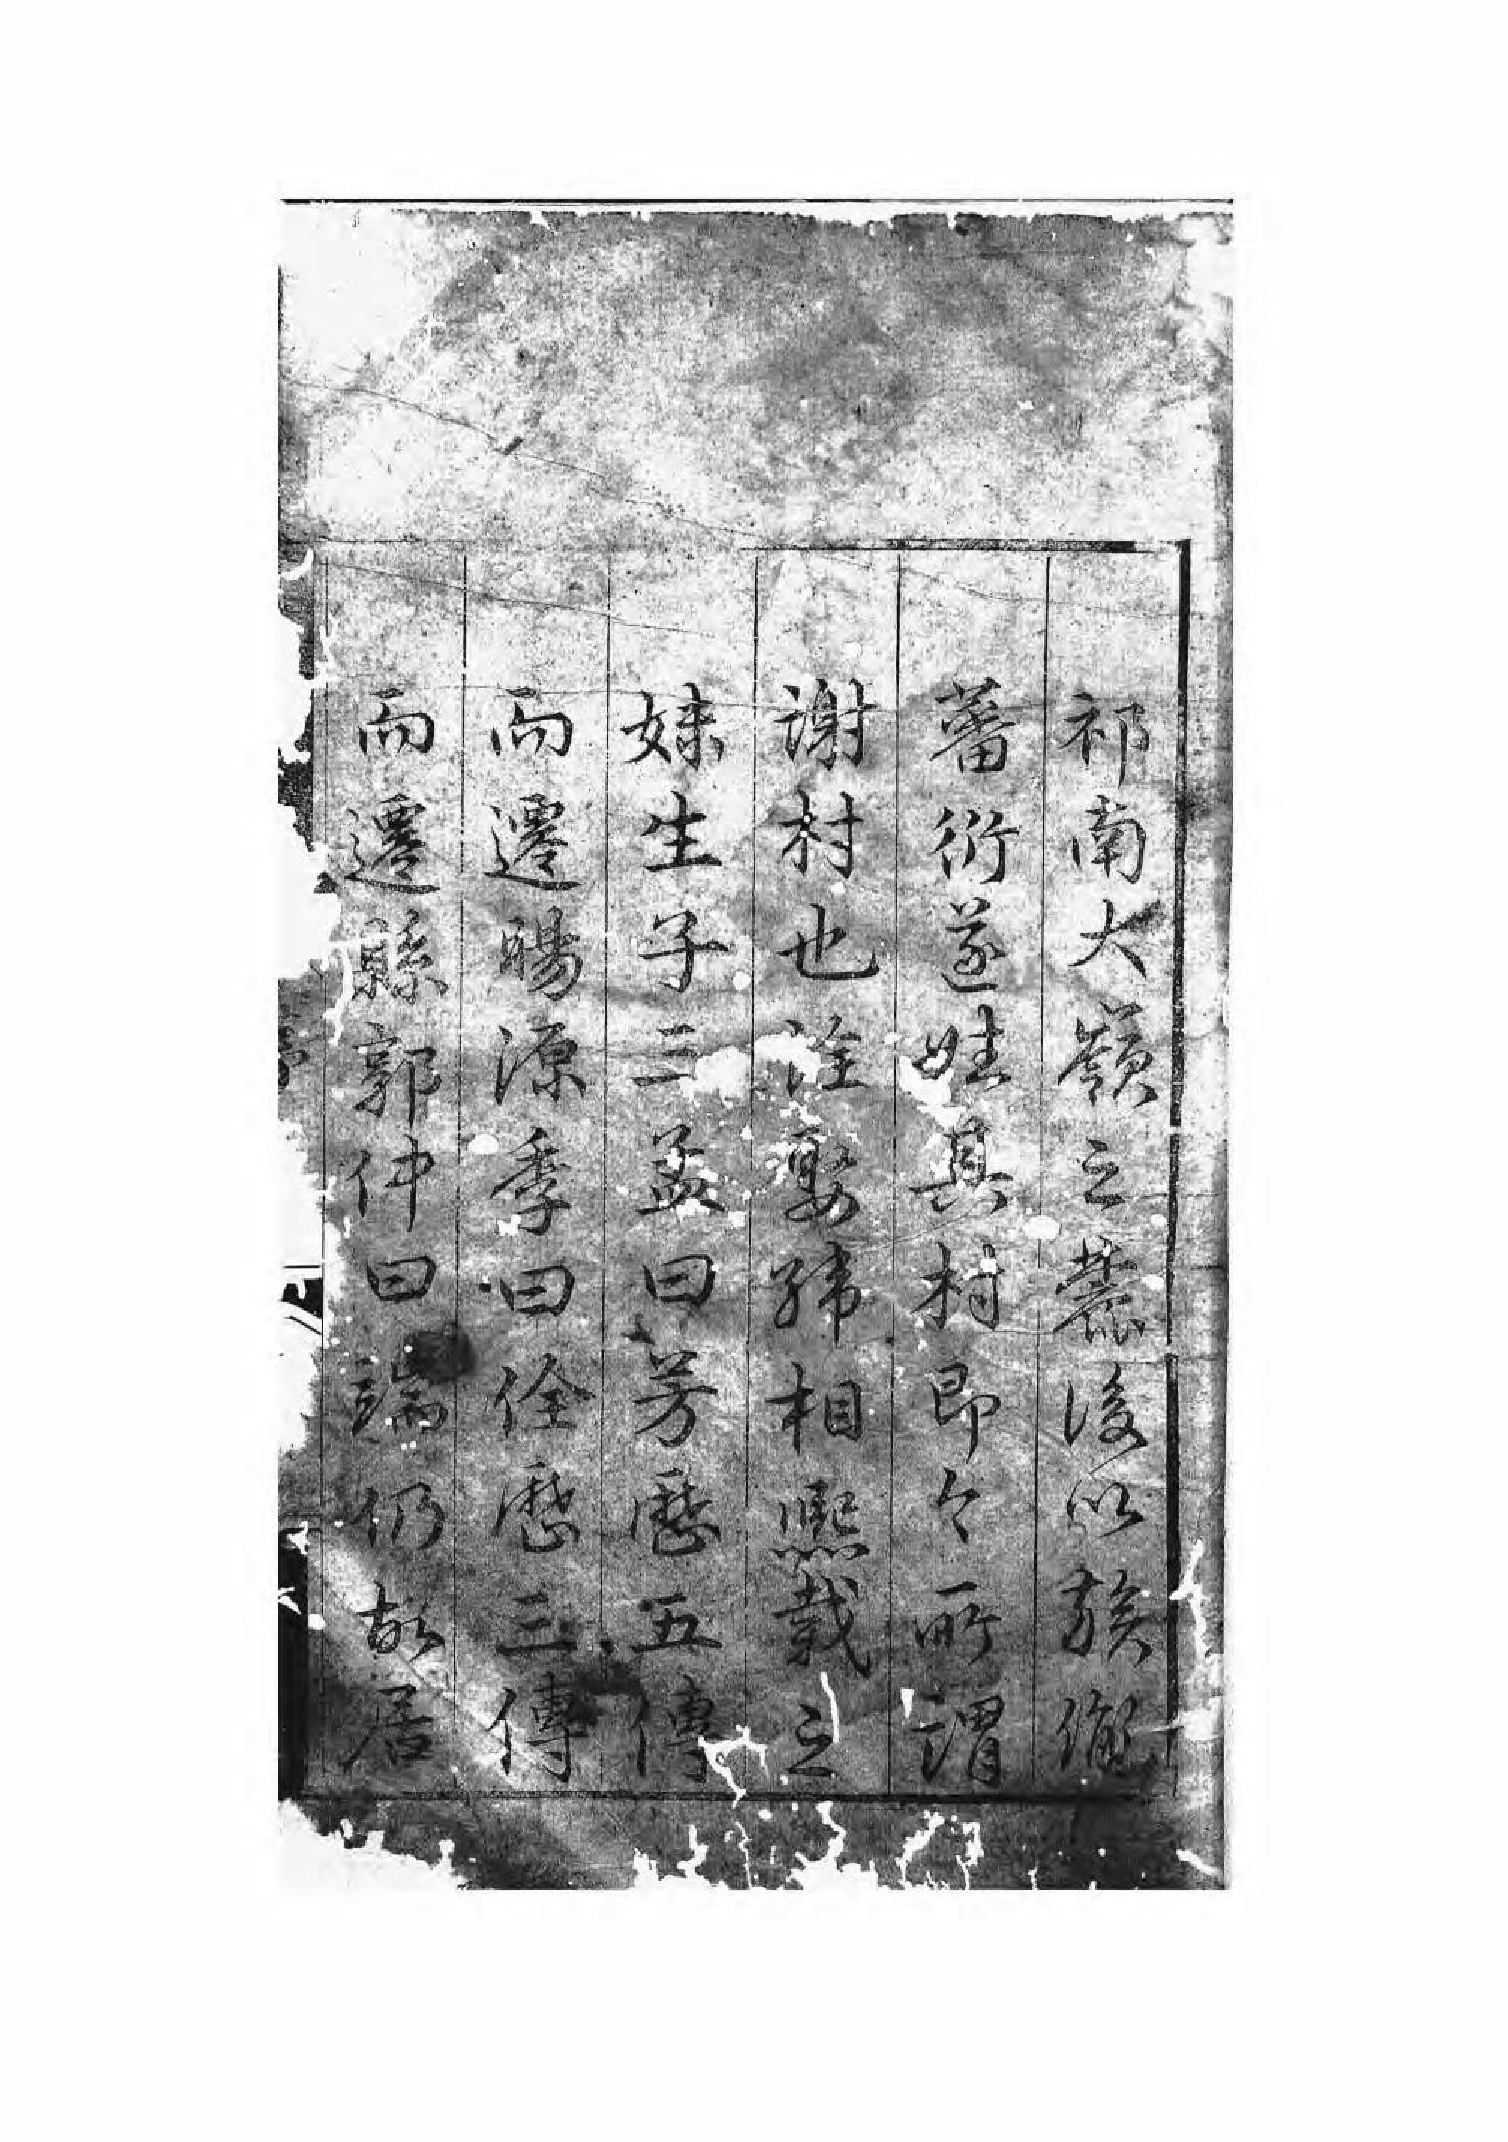 祁南大嶺之麓後以族繁
蕃衍遂姓其村即今所謂
謝村也詮娶婺源相熙載之
妹生子三孟曰芳歷五傳
而遷暘源季曰佺歷三傳
而遷縣郭仲曰端仍故居